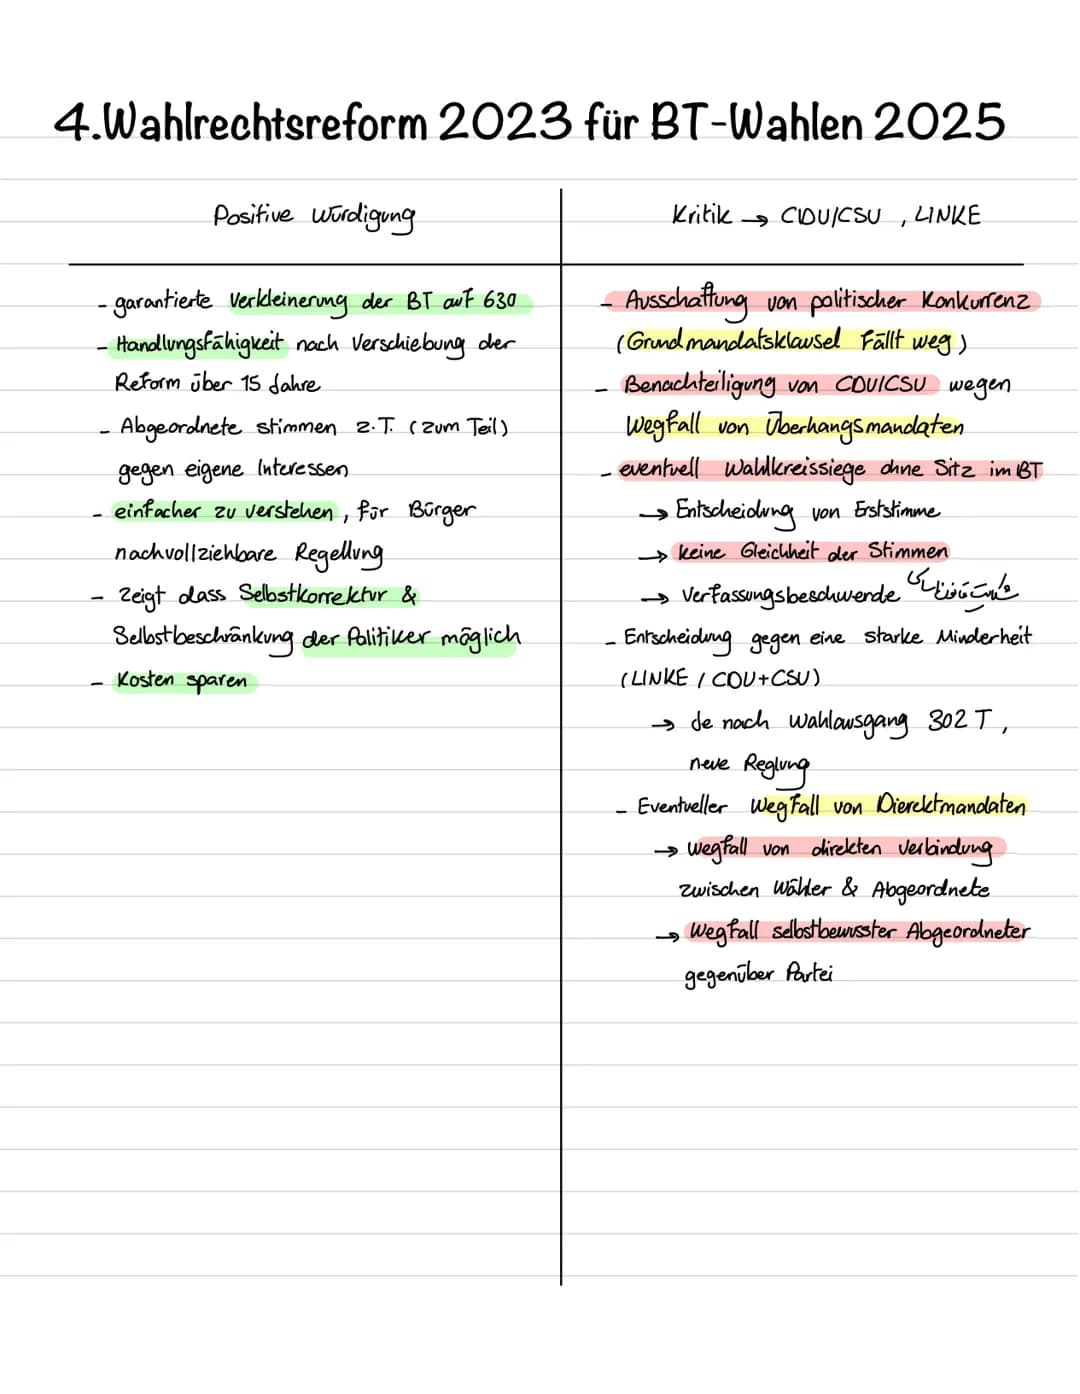 4.Wahlrechtsreform 2023 für BT-Wahlen 2025
Positive Würdigung
- garantierte Verkleinerung der BT auf 630
- Handlungsfähigkeit nach Verschiebung der
Reform über 15 Jahre
- Abgeordnete stimmen z.T. (zum Teil)
gegen eigene Interessen
- einfacher zu verstehen, für Bürger
nachvollziehbare Regellung
- Zeigt dass Selbstkorrektur &
Selbstbeschränkung der Politiker möglich
- Kosten sparen
Kritik → CDU/CSU, LINKE
- Ausschaffung von politischer Konkurrenz
(Grundmandatsklausel Fällt weg)
- Benachteiligung von CDU/CSU wegen
Wegfall von Überhangsmandaten
- eventuell Wahlkreissiege ohne Sitz im BT
→ Entscheidung von Erststimme
→ keine Gleichheit der Stimmen
→ Verfassungsbeschwerde
- Entscheidung gegen eine starke Minderheit
(LINKE / CDU+CSU)
→ Je nach Wahlausgang 302 T,
neue Reglung
- Eventueller Wegfall von Dierektmandaten
→ wegfall von direkten Verbindung
zwischen Wähler & Abgeordnete
→ Wegfall selbstbewusster Abgeordneter
gegenüber Partei